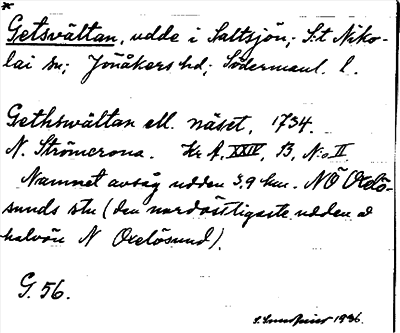 *
Getsvältan, udde i Saltsjön; S:t Niko-
lai sn; Jönåkers hd; Södermanl. l.
Gethswältan ell. näset, 1734.
N. Strömcrona. Kr A, XXIV, B, N:o II.
Namnet avsåg udden 3,9 km. NÖ Oxelö-
sunds stn (den nordöstligaste udden å
halvön N Oxelösund).
G. 56.
1936.